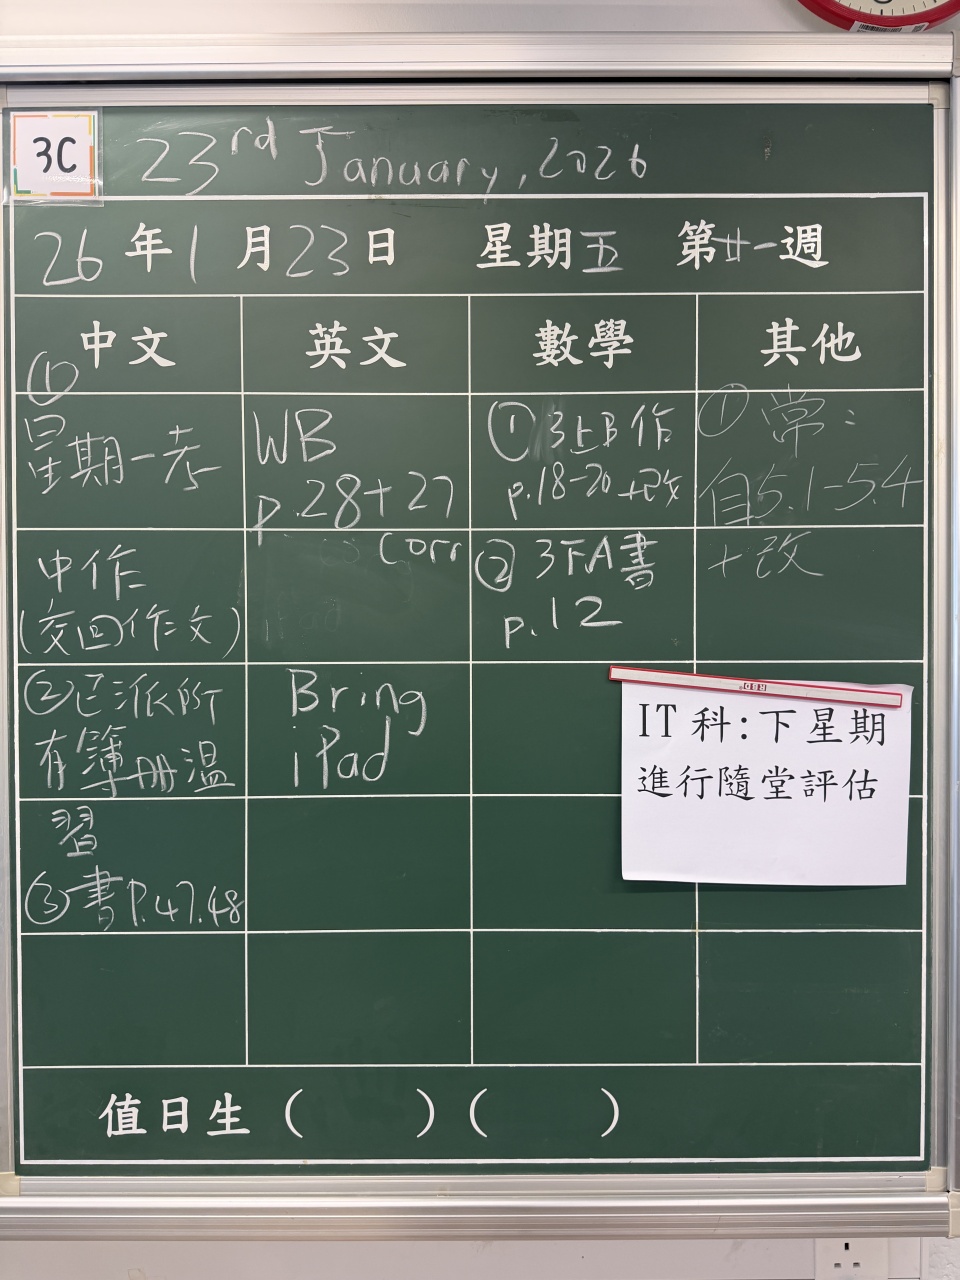 3C
23rd January, 2026
26年1月23日 星期五 第廿一週
中文 英文 數學 其他
①
星期一考
中作
(交回作文)
②已派所
有簿册溫
習
③書P.47.48
WB
p.28+27
Corr
Bring
iPad
①3上B作
p.18-20+改
②3下A書
p.12
①常:
自5.1-5.4
+改
IT科:下星期
進行隨堂評估
值日生 ( ) ( )